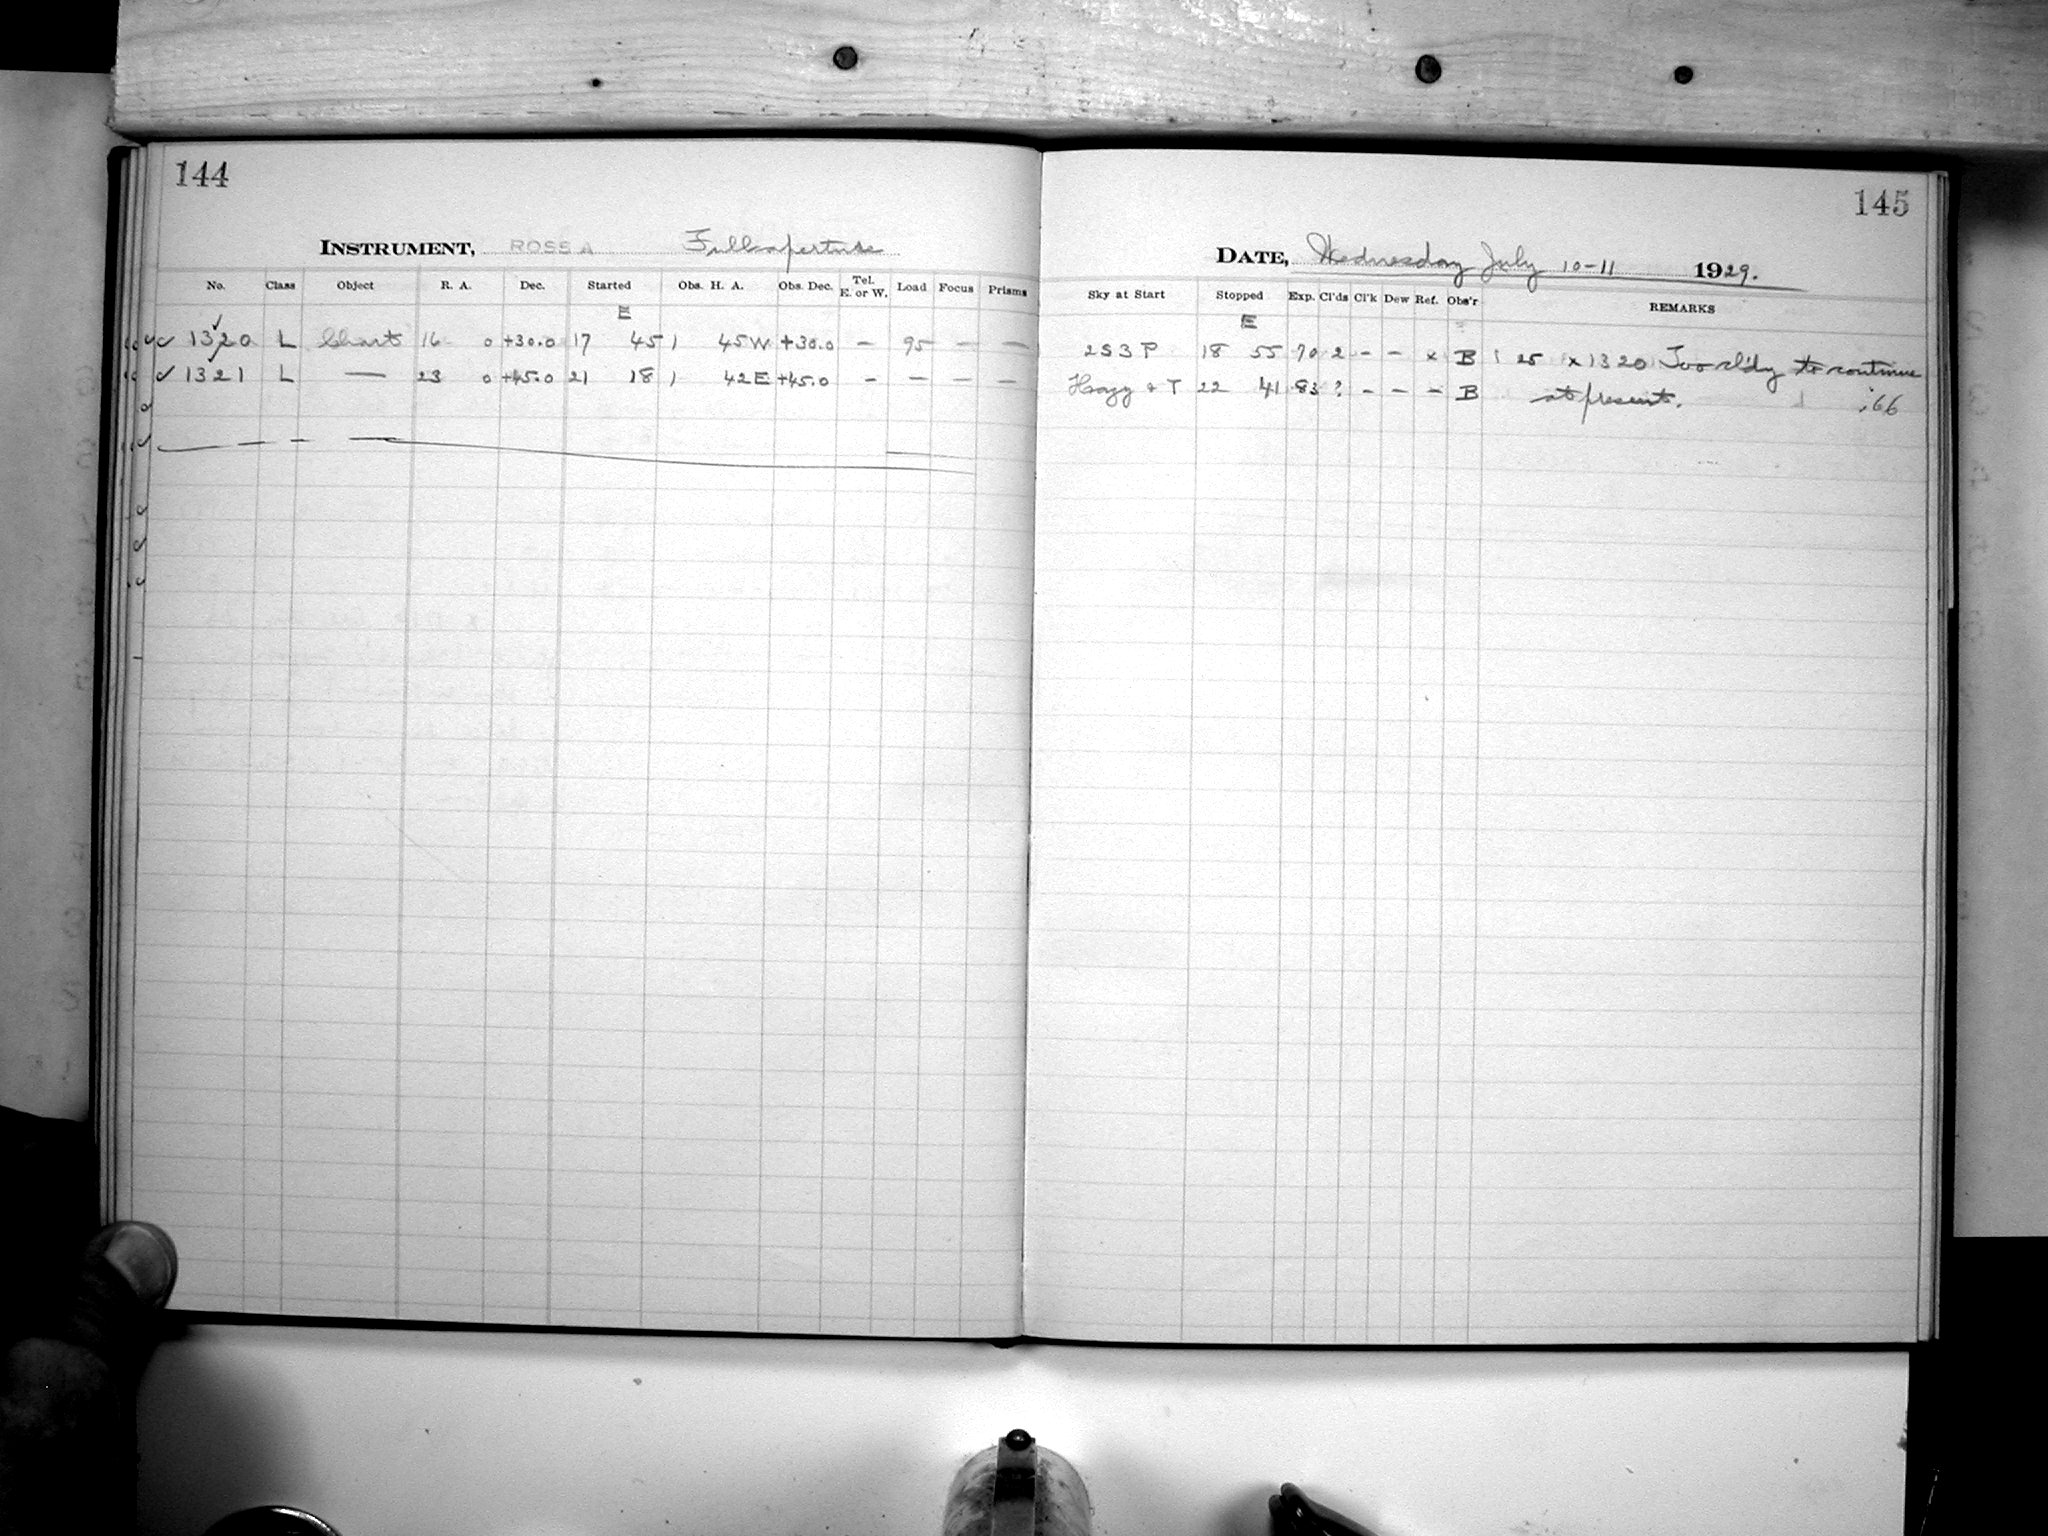 144
INSTRUMENT, ROSS A Full aperture
No. Class Object R. A. Dec. Started Obs. H. A. Obs. Dec. Tel. E. or W. Load Focus Prisms
E
1320 L Chart 16 0 +30.0 17 45 1 45 W +30.0 — 95 — —
1321 L — 23 0 +45.0 21 18 1 42 E +45.0 — — — —
145
DATE, Wednesday July 10-11 1929.
Sky at Start Stopped Exp. Cl'ds Cl'k Dew Ref. Obs'r REMARKS
E
2S3P 18 55 70 2 — — x B 1 25 x 1320 Too cl'dy to continue
Hazy & T 22 41 83 ? — — — B at present. 66